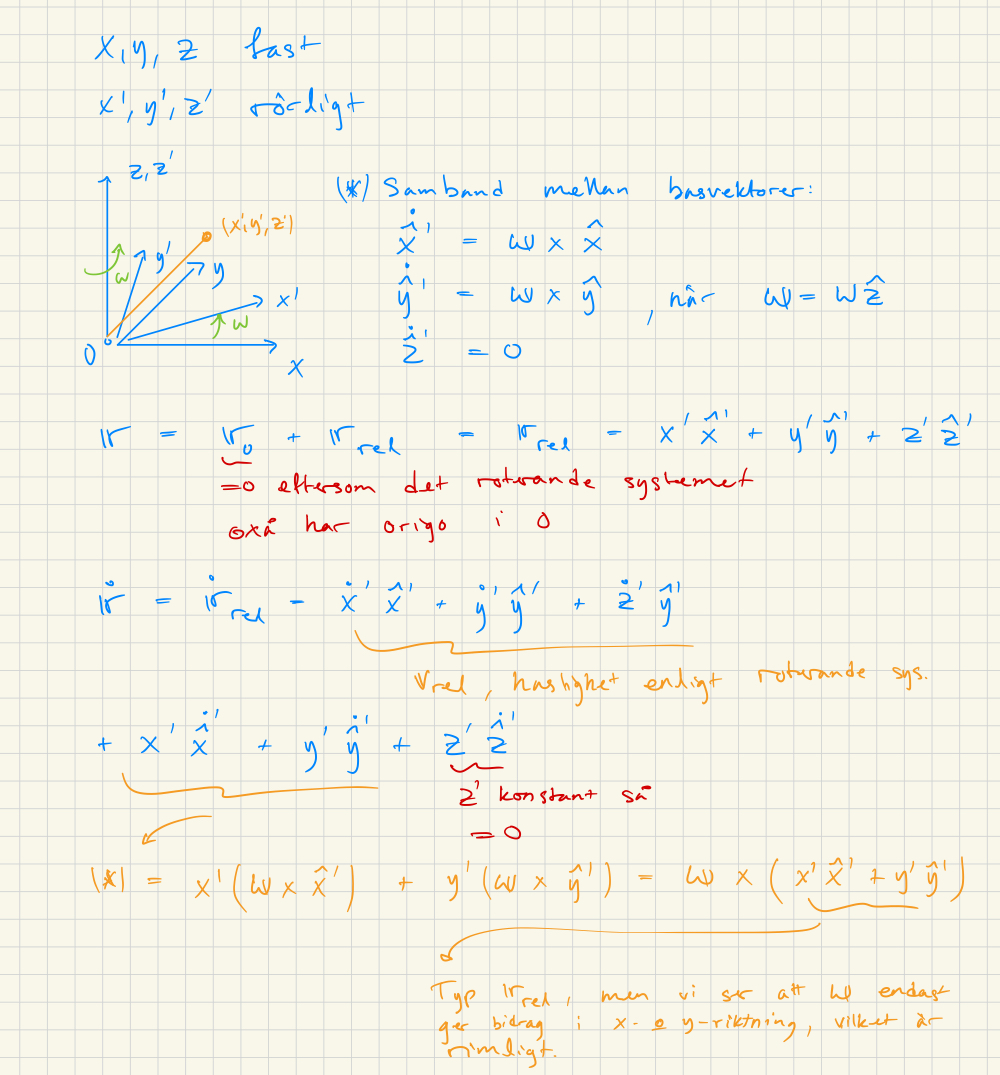 x, y, z fast
x', y', z' rörligt
z, z'
(x', y', z')
y'
ω
y
x'
ω
0
x
(*) Samband mellan basvektorer:
x̂̇' = ω × x̂
ŷ̇' = ω × ŷ , när ω = ωẑ
ẑ̇' = 0
𝕣 = 𝕣₀ + 𝕣rel = 𝕣rel = x' x̂' + y' ŷ' + z' ẑ'
=0 eftersom det roterande systemet
oxå har origo i 0
𝕣̇ = 𝕣̇rel = ẋ' x̂' + ẏ' ŷ' + ż' ŷ'
Vrel, hastighet enligt roterande sys.
+ x' x̂̇' + y' ŷ̇' + z' ẑ̇'
z' konstant så
= 0
(*) = x' (ω × x̂') + y' (ω × ŷ') = ω × (x' x̂' + y' ŷ')
Typ 𝕣rel, men vi ser att ω endast
ger bidrag i x- o y-riktning, vilket är
rimligt.